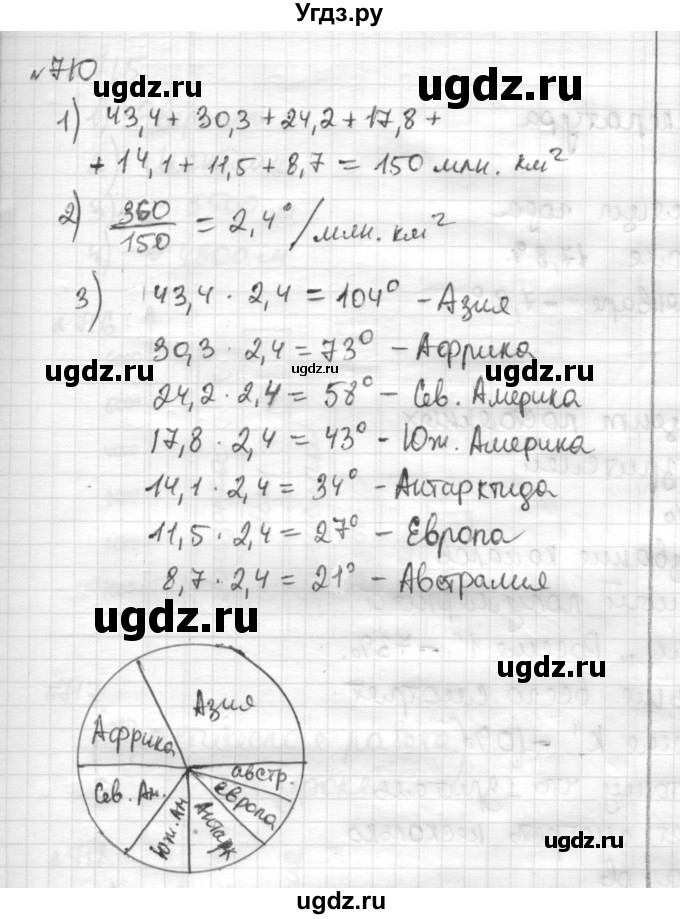 Угдз.ру
№710
ugdz.ru ugdz.ru
1) 43,4 + 30,3 + 24,2 + 17,8 +
+ 14,1 + 11,5 + 8,7 = 150 млн. км²
2) 360/150 = 2,4°/млн. км²
ugdz.ru ugdz.ru
3) 43,4 · 2,4 = 104° - Азия
30,3 · 2,4 = 73° - Африка
ugdz.ru ugdz.ru ugdz.ru
24,2 · 2,4 = 58° - Сев. Америка
17,8 · 2,4 = 43° - Юж. Америка
14,1 · 2,4 = 34° - Антарктида
11,5 · 2,4 = 27° - Европа
8,7 · 2,4 = 21° - Австралия
ugdz.ru ugdz.ru
Азия
Африка
австр.
Сев. Ам.
европа
Юж. Ам
Антарк
ugdz.ru ugdz.ru
ugdz.ru